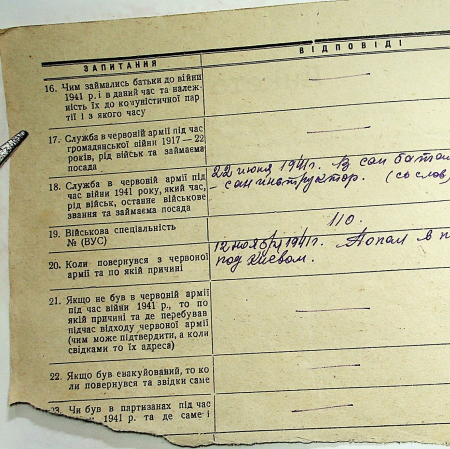 ЗАПИТАННЯ
ВІДПОВІДІ
16. Чим займались батьки до війни
1941 р. і в даний час та належ-
ність їх до комуністичної пар-
тії і з якого часу
17. Служба в червоній армії під час
громадянської війни 1917—22
років, рід військ та займаєма
посада
18. Служба в червоній армії під
час війни 1941 року, який час,
рід військ, останнє військове
звання та займаєма посада
22 июня 1941г. В сан батал
- санинструктор. (со слов
19. Військова спеціальність
№ (ВУС)
110.
20. Коли повернувся з червоної
армії та по якій причині
12 ноября 1941г. Попал в п
под Киевом.
21. Якщо не був в червоній армії
під час війни 1941 р., то по
якій причині та де перебував
підчас відходу червоної армії
(чим може підтвердити, а коли
свідками то їх адреса)
22. Якщо був евакуйований, то ко
ли повернувся та звідки саме
23. Чи був в партизанах під час
1941 р. та де саме і